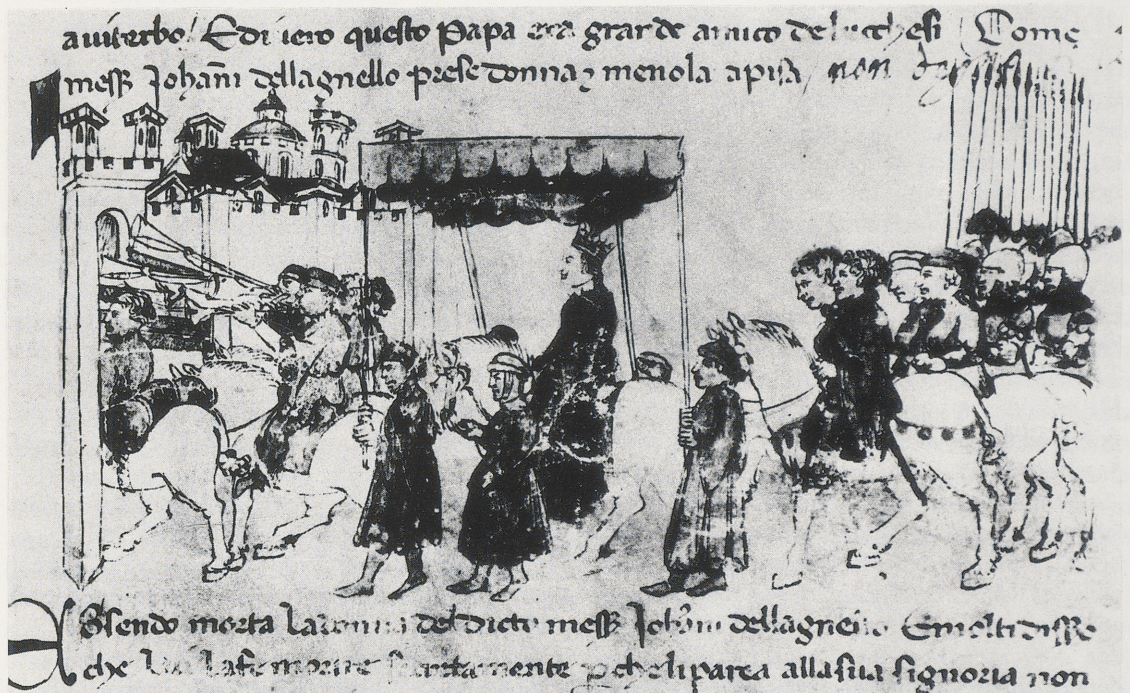 a viterbo Edi vero questo Papa era grande amico de lucchesi Come
mess Johanni dellagnello prese donna ⁊ menola a pisa non
Essendo morta la donna del dicto mess Johanni dellagnello E molti disse
che lui la fe morire p che li parea alla sua signoria non